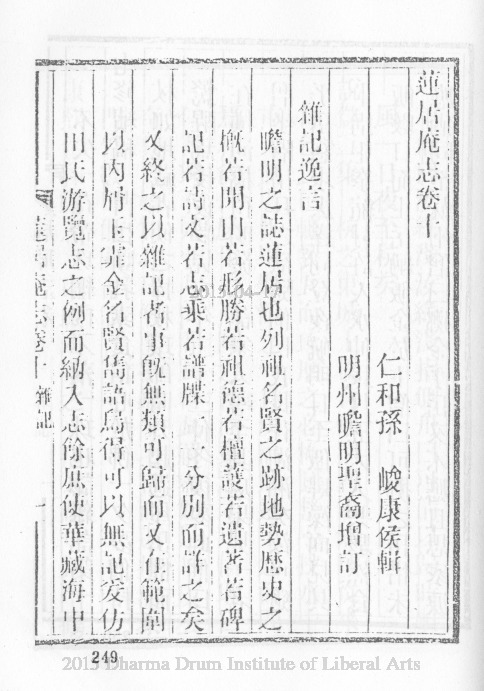 蓮居庵志卷十
仁和孫　峻康侯輯
明州瞻明聖裔增訂
雜記逸言
瞻明之誌蓮居也列祖名賢之跡地勢歷史之
概若開山若形勝若祖德若檀護若遺著若碑
記若詩文若志乘若譜牒一一分別而詳之矣
又終之以雜記者事既無類可歸而又在範圍
以內屑玉霏金名賢雋語烏得可以無記爰仿
田氏游覽志之例而納入志餘庶使華藏海中
蓮居庵志卷十 雜記 一
249
2013 Dharma Drum Institute of Liberal Arts